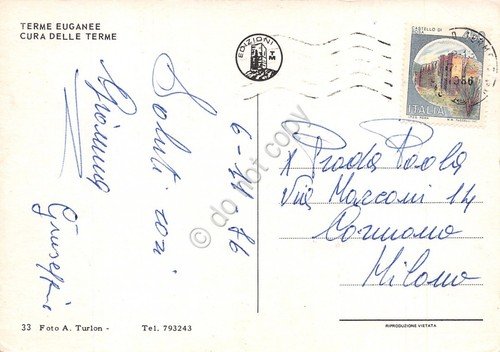 TERME EUGANEE
CURA DELLE TERME
EDIZIONI
TM
CASTELLO DI
ITALIA
6-11-86
Saluti
Giovanna
Giuseppina
x Prada Paola
Via Marconi 14
Cormano
Milano
do not copy
33 Foto A. Turlon - Tel. 793243
RIPRODUZIONE VIETATA